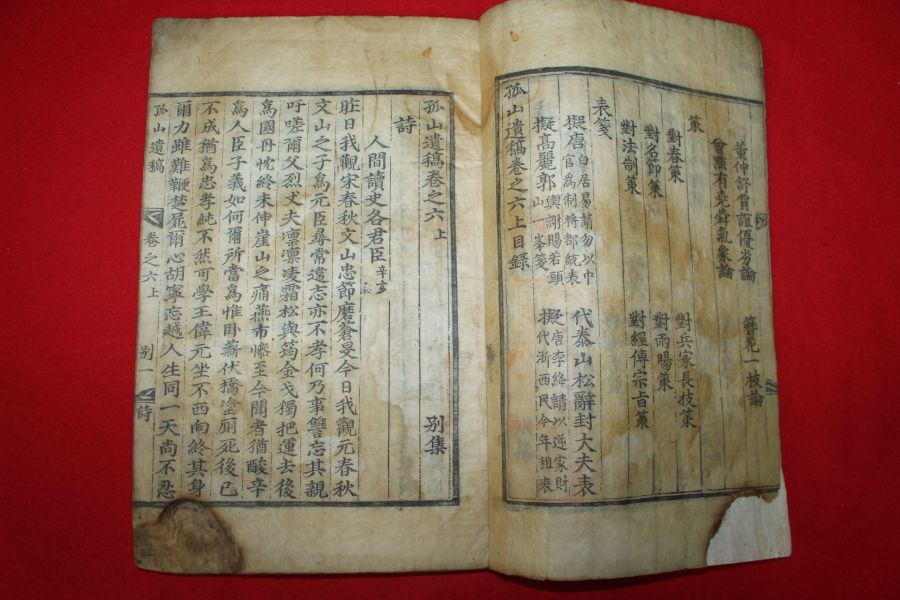 董仲舒賈誼優劣論 簪花一枝論
曾點有堯舜氣象論
策
對春策 對兵家長技策
對名節策 對雨暘策
對法制策 對經傳宗旨策
表箋
擬唐白居易請勿以中官爲制將都統表 代泰山松辭封大夫表
擬高麗郭輿謝賜若頭山一峯箋 擬唐李絳請以逆家財代浙西民今年租表
孤山遺稿卷之六上目錄
孤山遺稿卷之六上 別集
詩
人間讀史各君臣 辛亥
昨日我觀宋春秋文山忠節磨蒼旻今日我觀元春秋
文山之子爲元臣尋常遺志亦不孝何乃事讐忘其親
吁嗟爾父烈丈夫凛凛凌霜松與筠金戈獨把運去後
爲國丹忱終未伸崖山之痛燕市慘至今聞者猶酸辛
爲人臣子義如何爾所當爲惟卧薪伏橋塗厠死後已
不成猶爲忠孝純不然可學王偉元坐不西向終其身
爾力雖難鞭楚屍爾心胡寧忘越人生同一天尚不忍
孤山遺稿 卷之六上 別一 詩